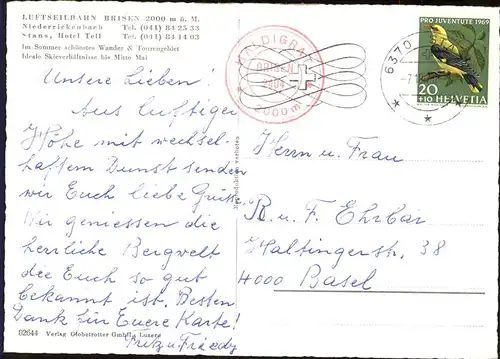 LUFTSEILBAHN BRISEN 2000 m ü. M.
Niederrickenbach Tel. (041) 84 25 33
Stans, Hotel Tell Tel. (041) 84 14 03
Im Sommer schönstes Wander & Tourengebiet
Ideale Skiverhältnisse bis Mitte Mai
Unsere Lieben!
Aus luftiger
Höhe mit wechsel-
haftem Dunst senden
wir Euch liebe Grüsse.
Wir geniessen die
herrliche Bergwelt
die Euch so gut
bekannt ist. Besten
Dank für Euere Karte!
Fritz u Friedy
02644 Verlag Globetrotter GmbH, Luzern
Reproduktion verboten
HALDIGRAT
BRISEN
2000 m
6370
PRO JUVENTUTE 1969
20
+10 HELVETIA
Herrn u. Frau
R. u. F. Ehrbar
Haltingerstr. 38
4000 Basel